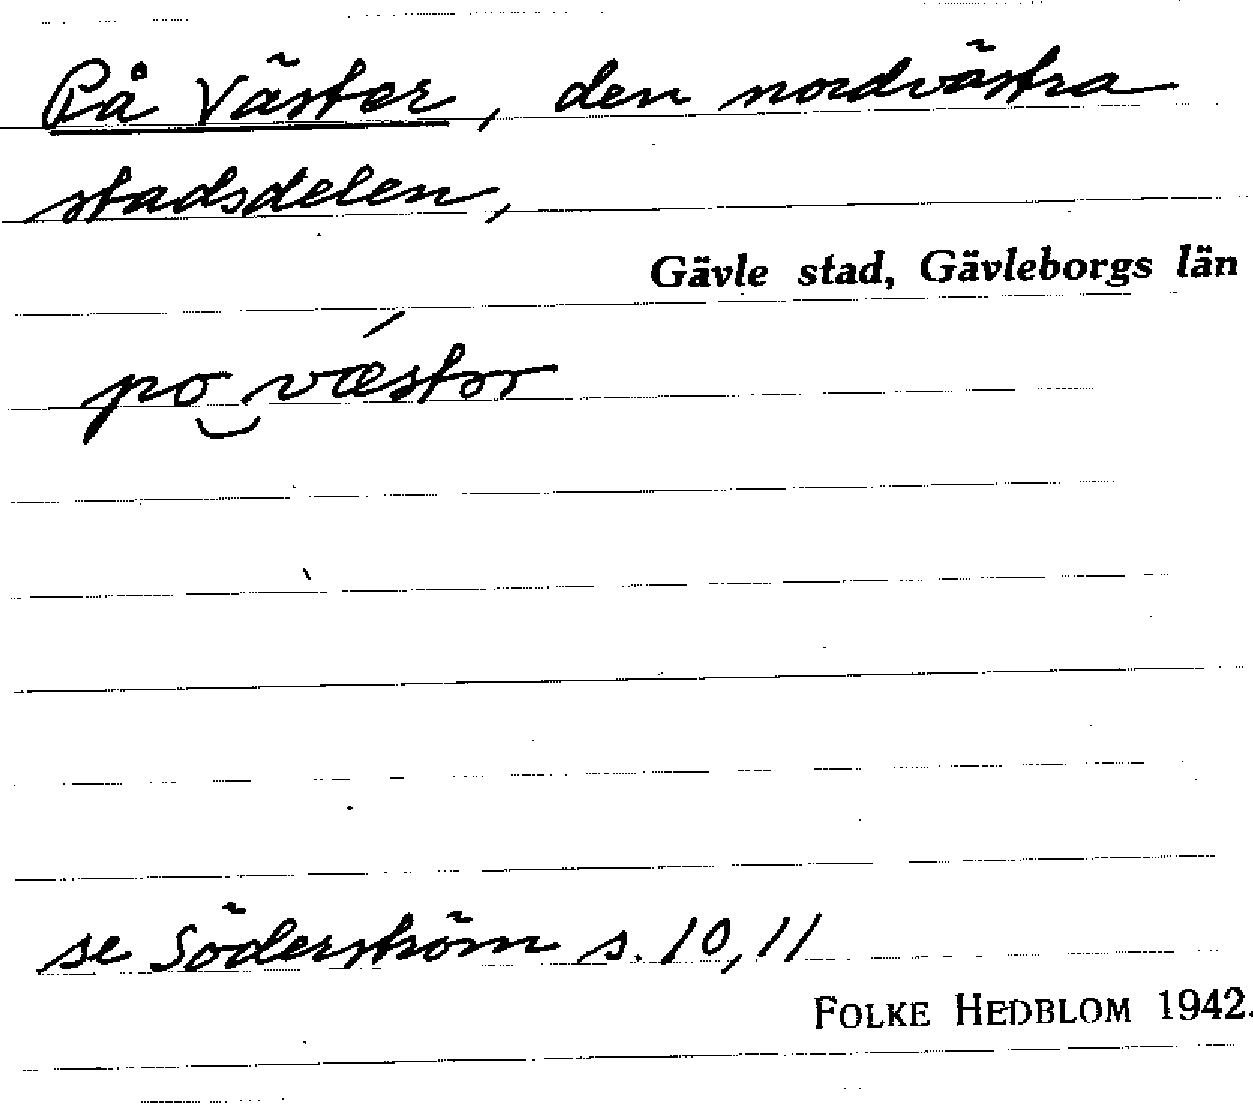 På Väster, den nordvästra
stadsdelen,
Gävle stad, Gävleborgs län
po‿vǽstər
se Söderström s. 10, 11
FOLKE HEDBLOM 1942.